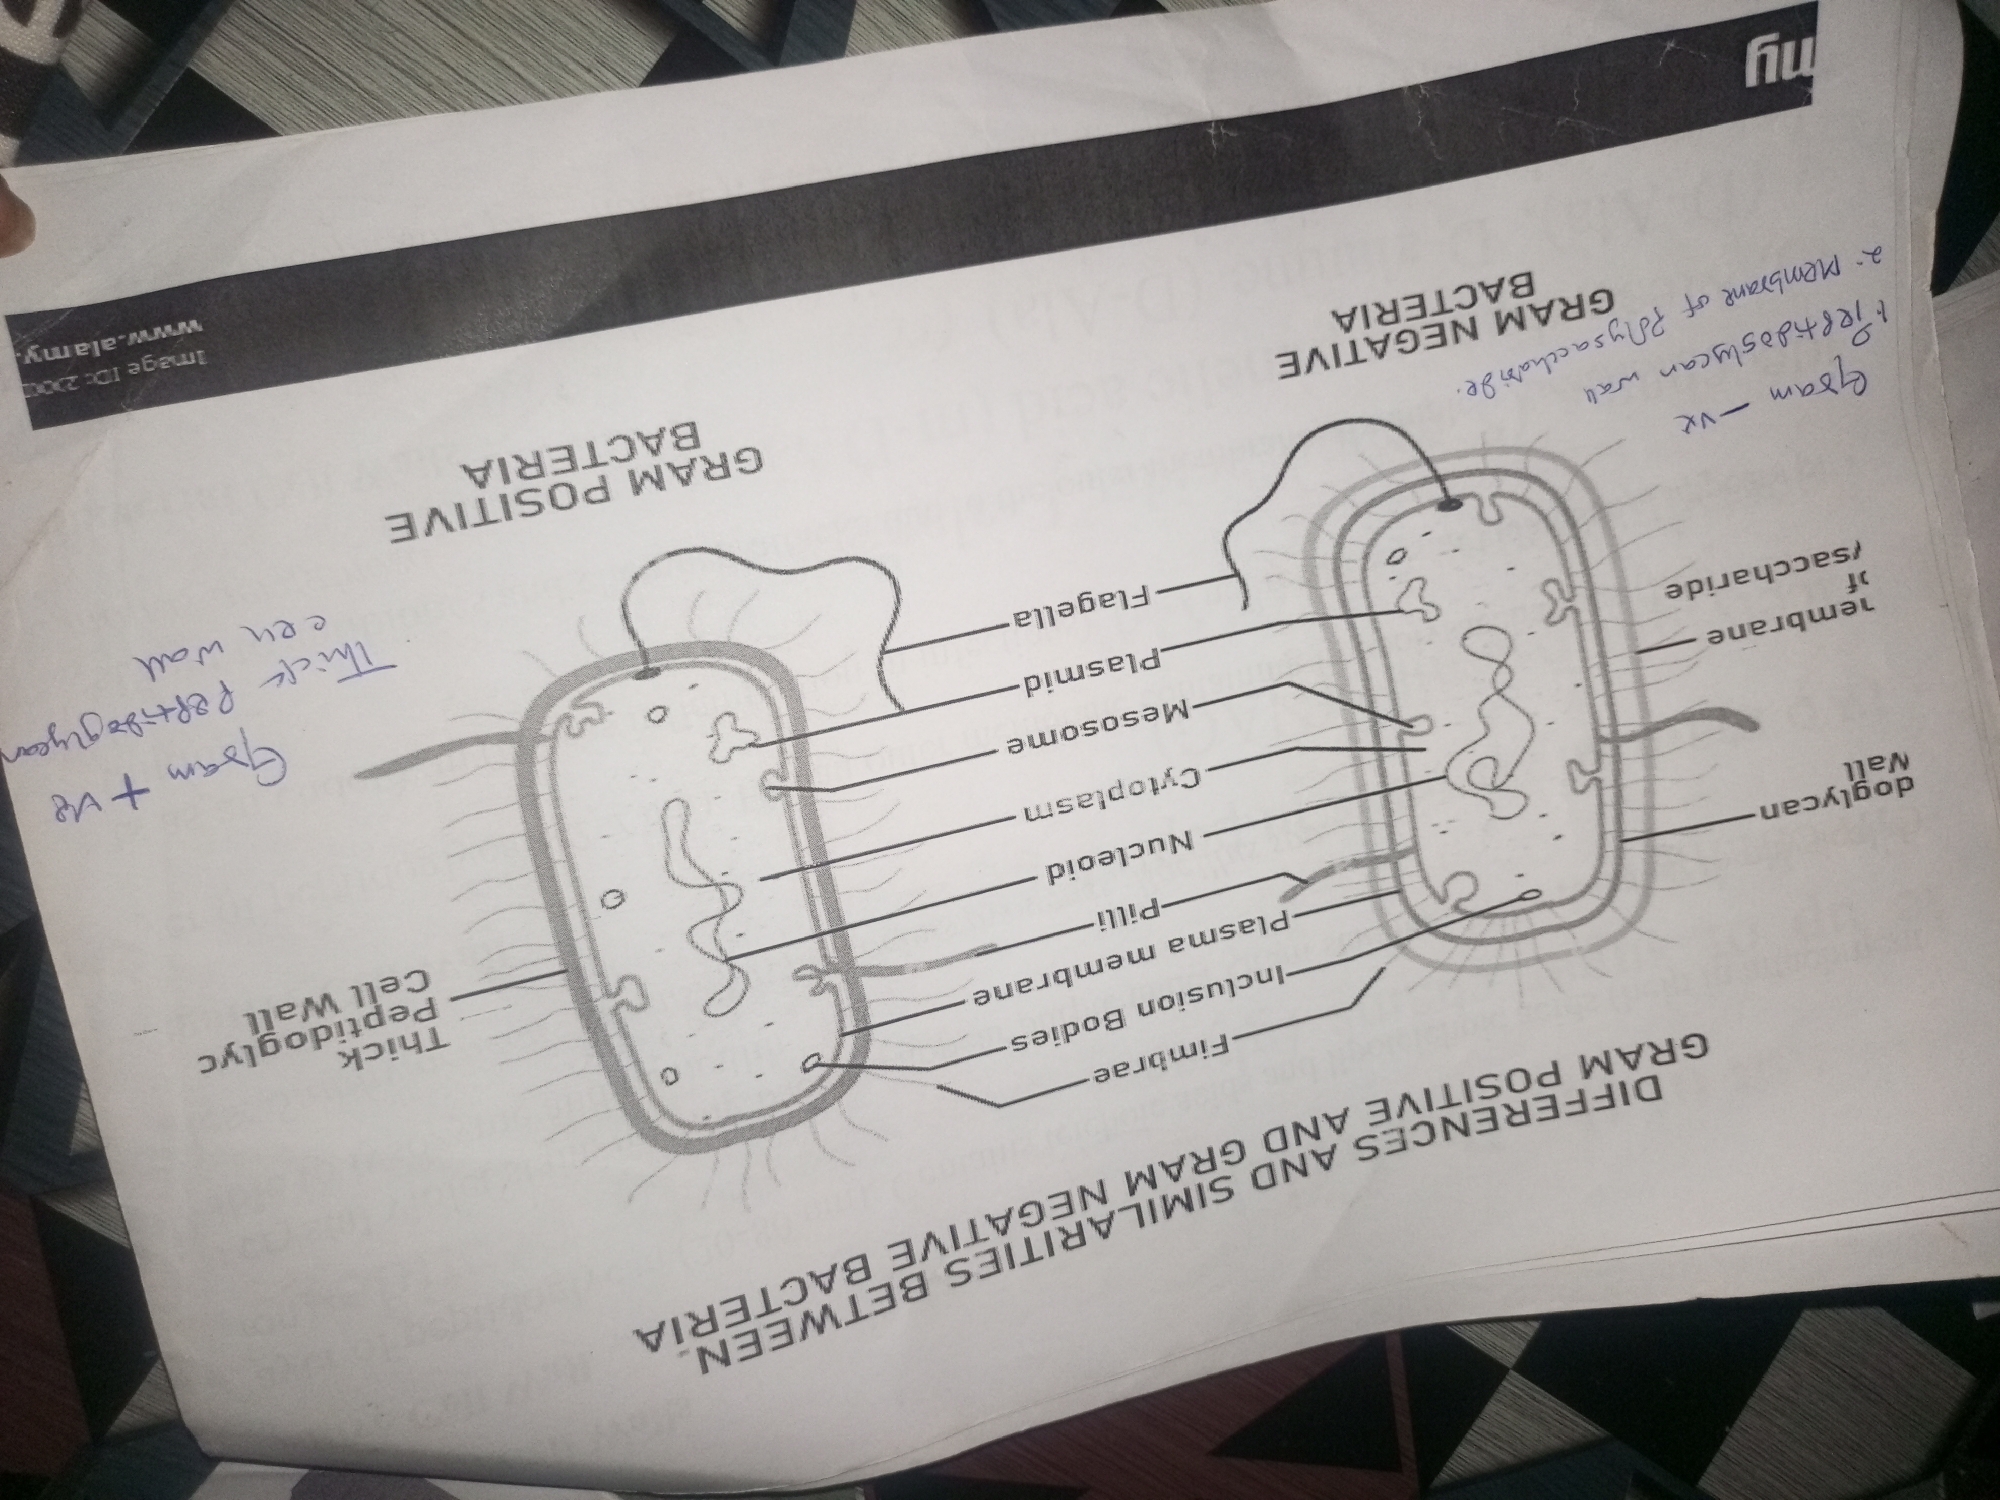 DIFFERENCES AND SIMILARITIES BETWEEN
GRAM POSITIVE AND GRAM NEGATIVE BACTERIA
Fimbrae
Inclusion Bodies
Plasma membrane
Pilli
Nucleoid
Cytoplasm
Mesosome
Plasmid
Flagella
doglycan
Wall
embrane
of
saccharide
Thick
Peptidoglyc
Cell Wall
Gram -ve
1. Peptidoglycan wall
2. Membrane of Polysaccharide.
GRAM NEGATIVE
BACTERIA
Gram +ve
Thick Peptidoglycan
cell wall
GRAM POSITIVE
BACTERIA
my
Image ID:
www.alamy.